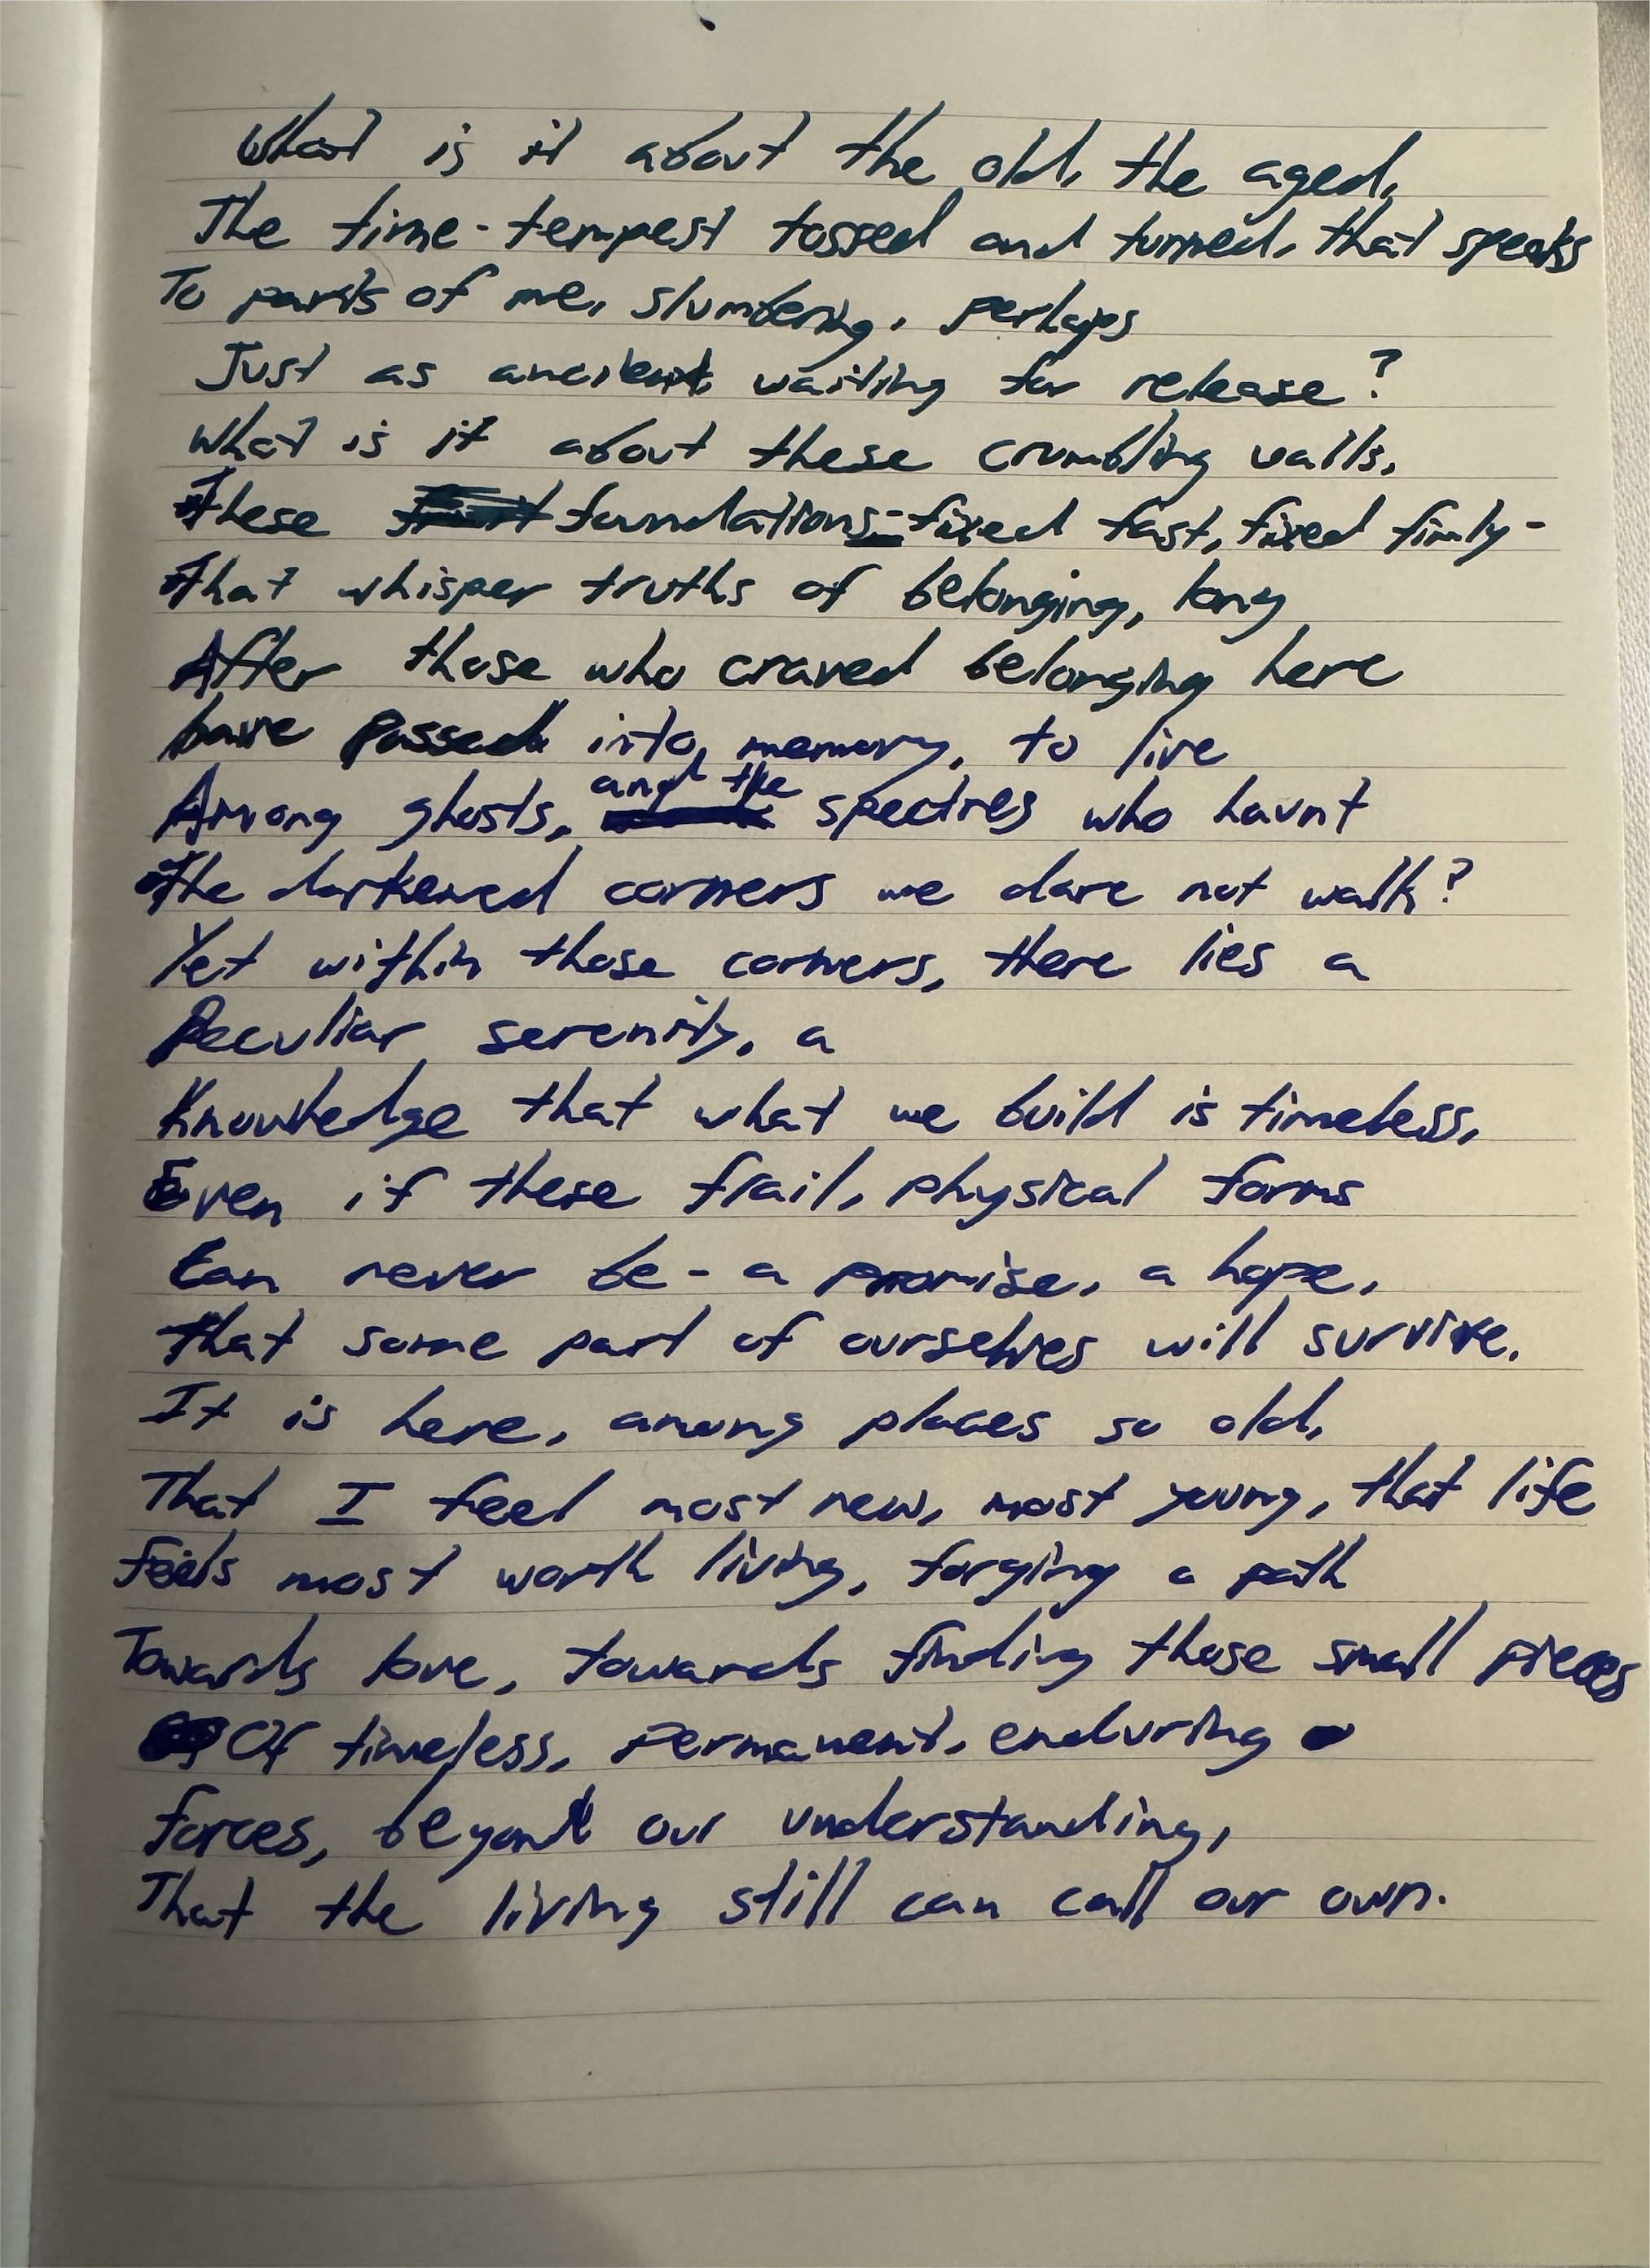 What is it about the old, the aged,
The time-tempest tossed and turned, that speaks
To parts of me, slumbering, perhaps
Just as ancient, waiting for release?
What is it about these crumbling walls,
These foundations - fixed fast, fixed firmly -
That whisper truths of belonging, long
After those who craved belonging here
have passed into memory, to live
Among ghosts, and the spectres who haunt
The darkened corners we dare not walk?
Yet within those corners, there lies a
Peculiar serenity, a
Knowledge that what we build is timeless,
Even if these frail, physical forms
Can never be - a promise, a hope,
That some part of ourselves will survive.
It is here, among places so old,
That I feel most new, most young, that life
Feels most worth living, forging a path
Towards love, towards finding those small pieces
Of timeless, permanent, enduring
forces, beyond our understanding,
That the living still can call our own.